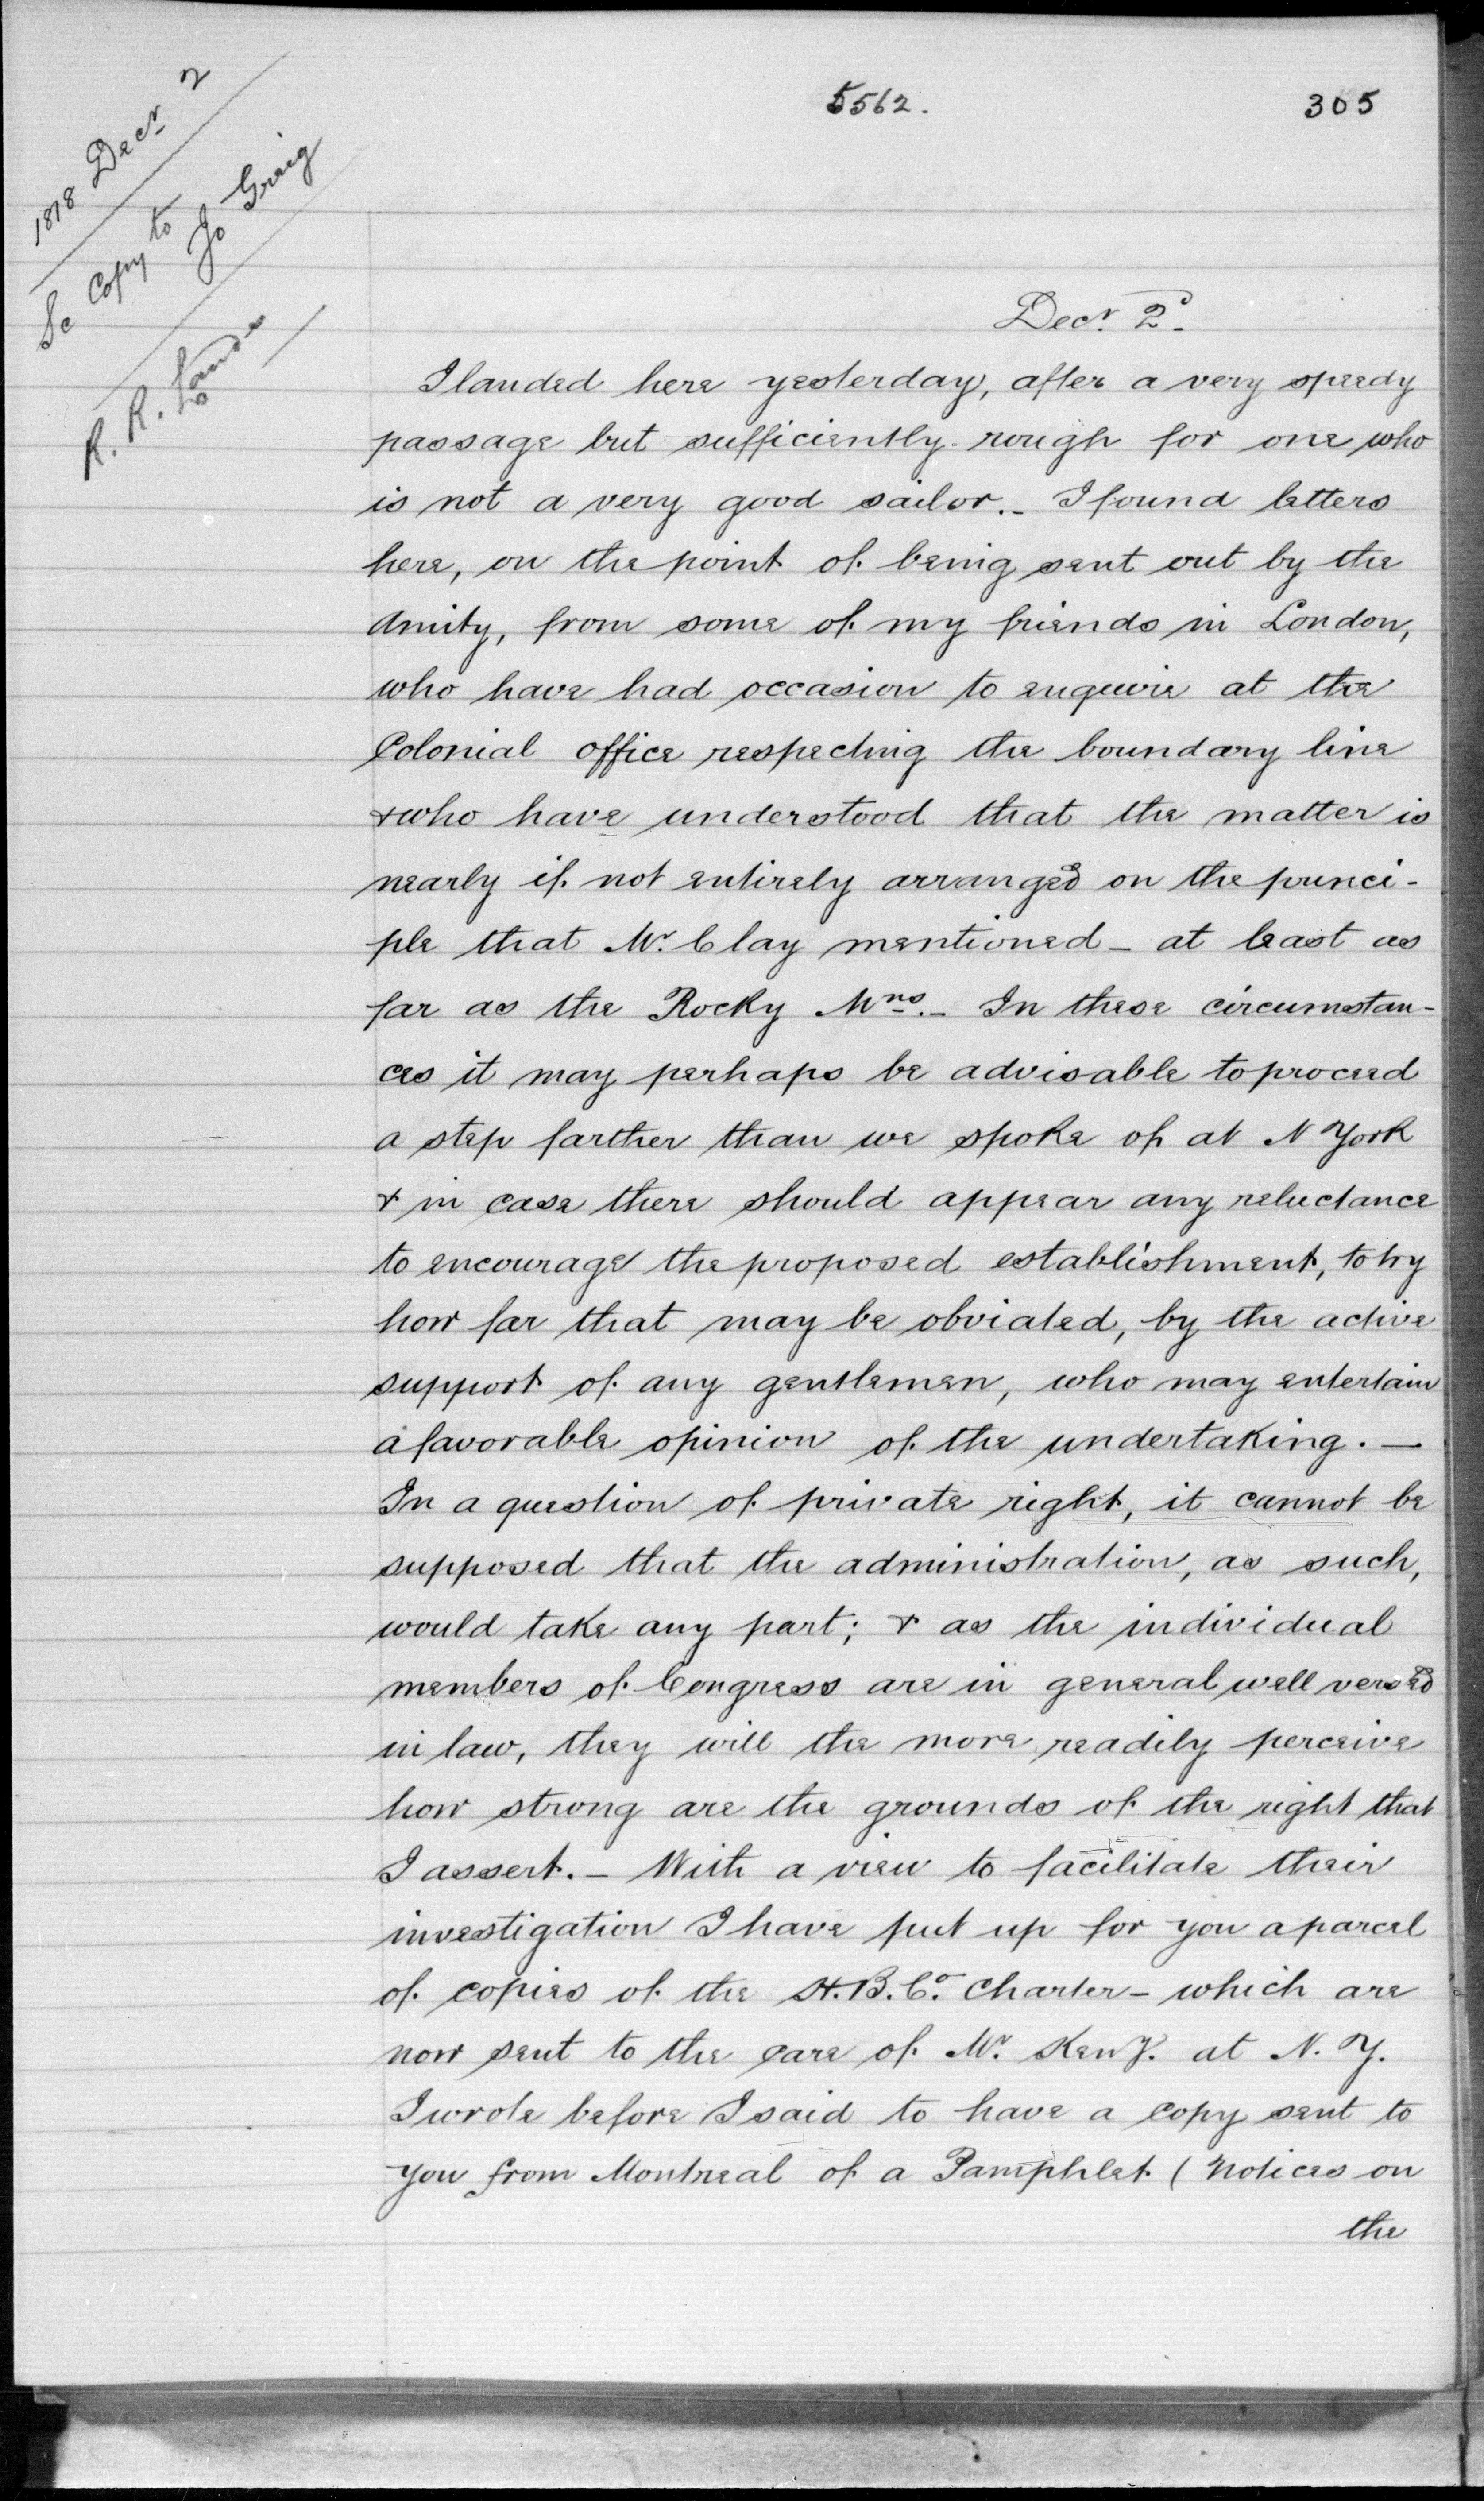 5562.
305
1818 Decr 2
Sc Copy to
Jo Greig
R. R. Lands
Decr. 2d.
I landed here yesterday, after a very speedy
passage but sufficiently rough for one who
is not a very good sailor.- I found letters
here, on the point of being sent out by the
Amity, from some of my friends in London,
who have had occasion to enquire at the
Colonial office respecting the boundary line
& who have understood that the matter is
nearly if not entirely arranged on the princi-
ple that Mr. Clay mentioned - at least as
far as the Rocky Mns.- In these circumstan-
ces it may perhaps be advisable to proceed
a step farther than we spoke of at N York
& in case there should appear any reluctance
to encourage the proposed establishment, to try
how far that may be obviated, by the active
support of any gentlemen, who may entertain
a favorable opinion of the undertaking. -
In a question of private right, it cannot be
supposed that the administration, as such,
would take any part; & as the individual
members of Congress are in general well versed
in law, they will the more readily perceive
how strong are the grounds of the right that
I assert. - With a view to facilitate their
investigation I have put up for you a parcel
of copies of the H.B.Co. Charter - which are
now sent to the care of Mr. Keny. at N. Y.
I wrote before I said to have a copy sent to
you from Montreal of a Pamphlet (Notices on
the